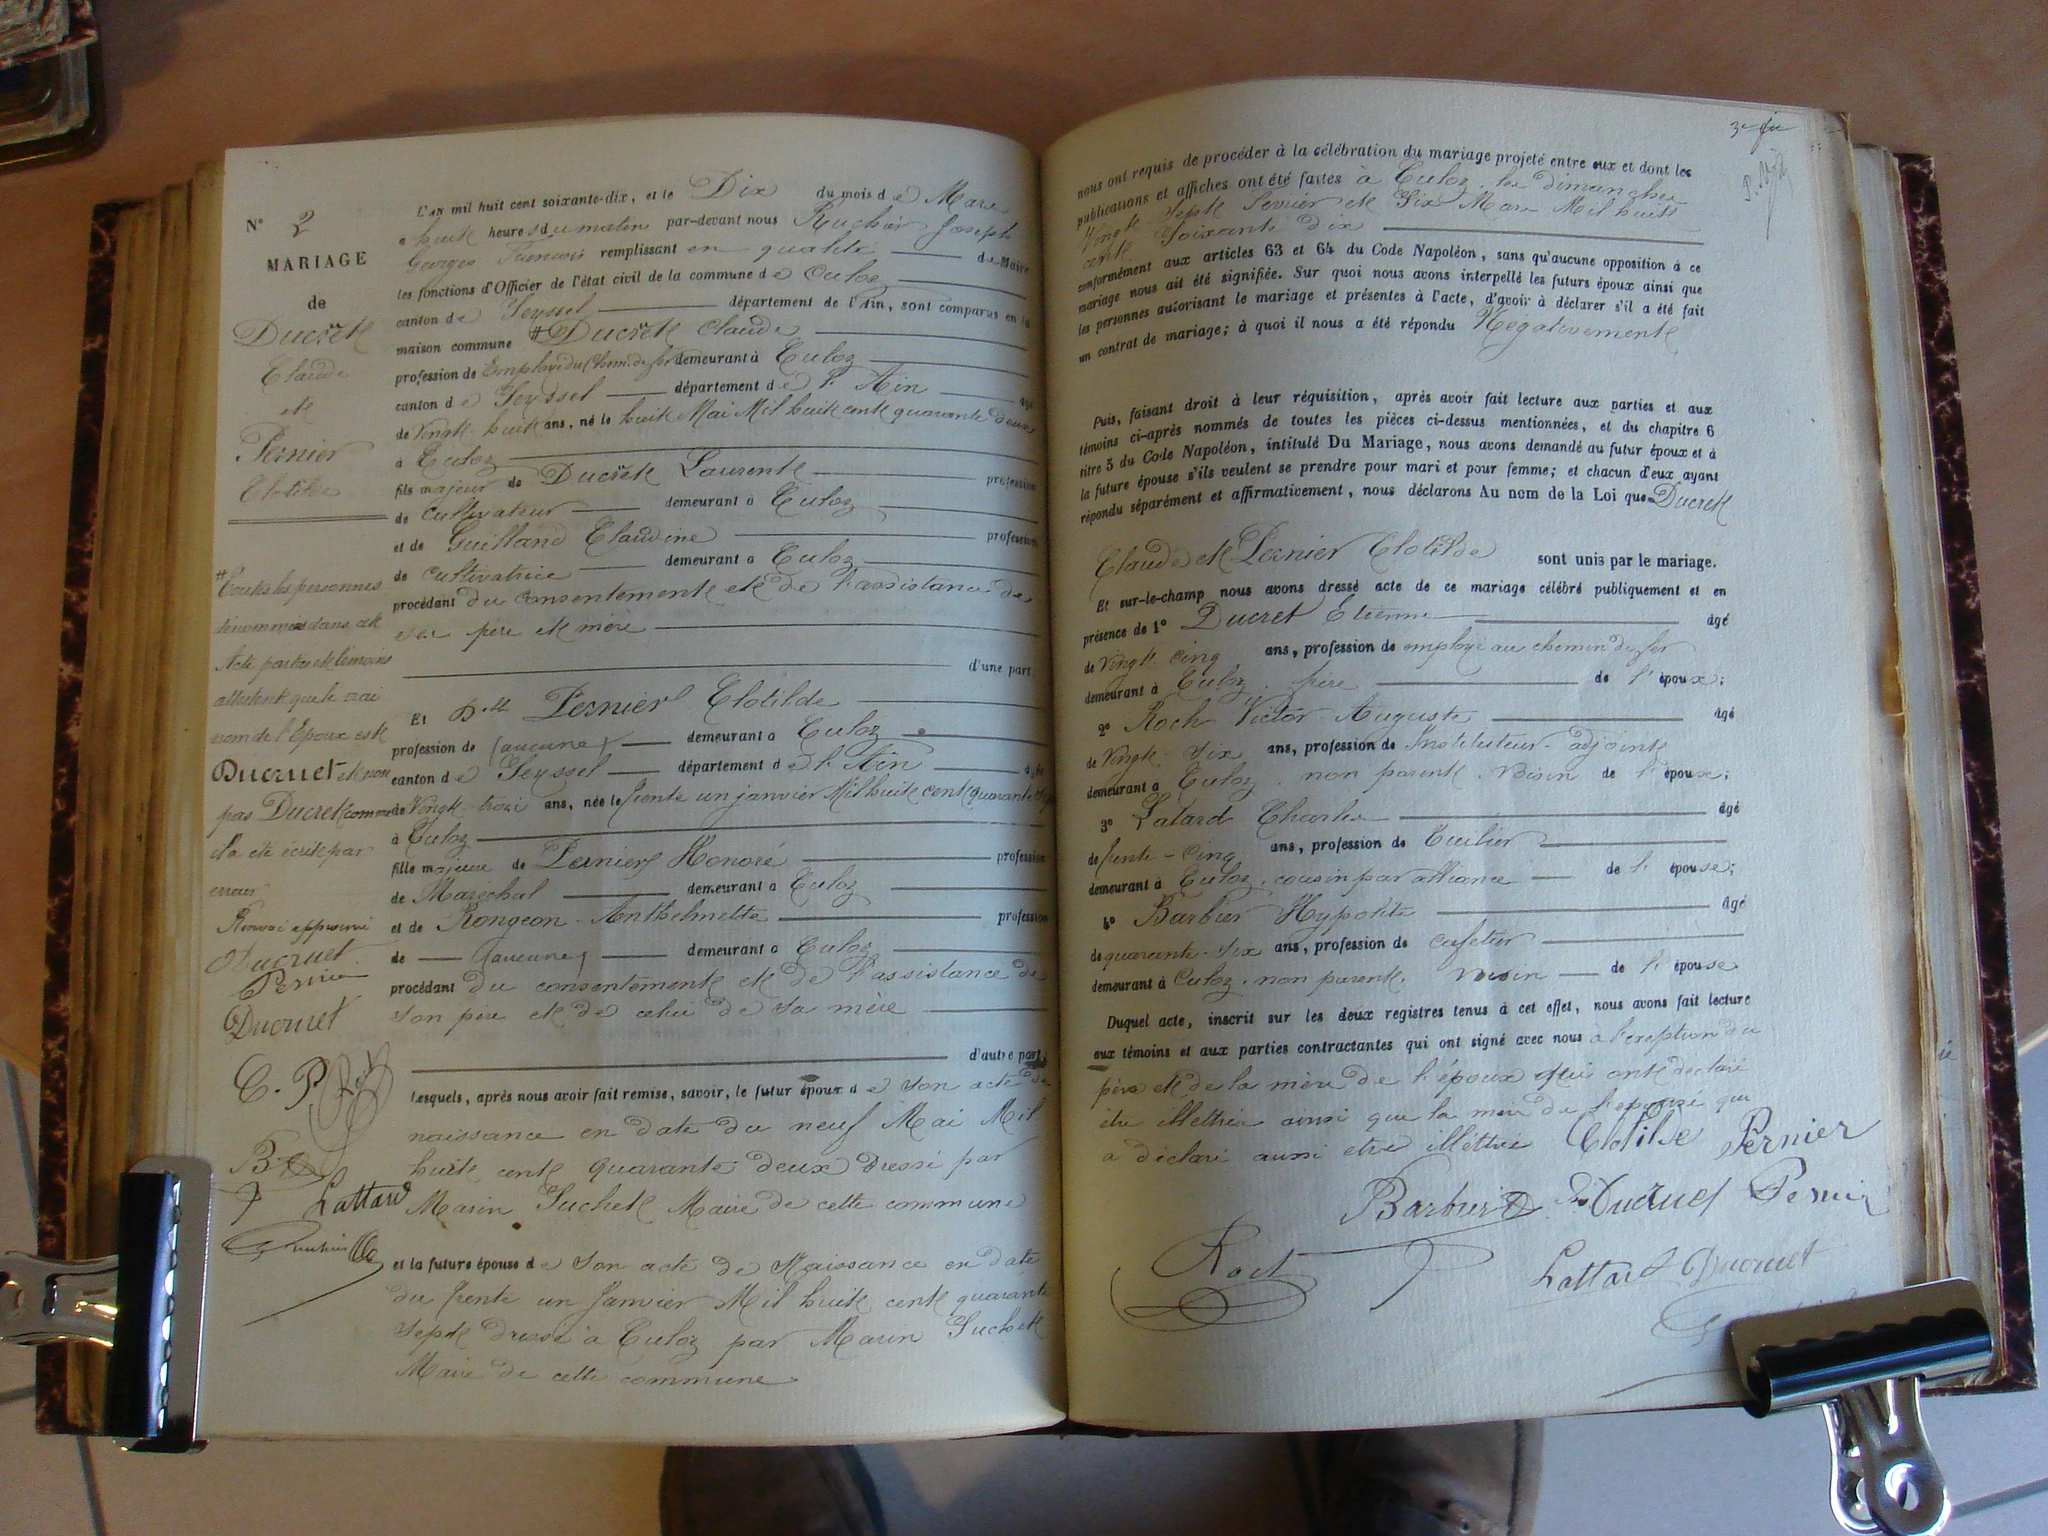 N° 2
MARIAGE
de
Ducrêt
Claude
et
Pernier
Clotilde
# Toutes les personnes
dénommées dans cet
Acte parties et témoins
attestent que le vrai
nom de l'Epoux est
Ducruet et non
pas Ducret comme
il a été écrit par
erreur
Renvoi approuvé
Ducruet
Pernier
Ducruet
C. P. Roch
Lattard
L'an mil huit cent soixante-dix, et le Dix du mois de Mars
à huit heures du matin par-devant nous Ruchier Joseph
Georges François remplissant en qualité de Maire
les fonctions d'Officier de l'état civil de la commune de Culoz
canton de Seyssel département de l'Ain, sont comparus en la
maison commune # Ducrêt Claude
profession de Employé du Chem. de fer demeurant à Culoz
canton de Seyssel département de l'Ain âgé
de Vingt-huit ans, né le huit Mai Mil huit cent quarante deux
à Culoz
fils majeur de Ducrêt Laurent profession
de Cultivateur demeurant à Culoz
et de Guilland Claudine profession
de Cultivatrice demeurant à Culoz
procédant du consentement et de l'assistance de
ses père et mère
d'une part
Et Dlle Pernier Clotilde
profession de (aucune) demeurant à Culoz
canton de Seyssel département de l'Ain âgée
de Vingt-trois ans, née le trente un janvier Mil huit cent quarante sept
à Culoz
fille majeure de Pernier Honoré profession
de Maréchal demeurant à Culoz
et de Rongeon Anthelmette profession
de (aucune) demeurant à Culoz
procédant du consentement et de l'assistance de
son père et de celui de sa mère
d'autre part.
Lesquels, après nous avoir fait remise, savoir, le futur époux de son acte de
naissance en date du neuf Mai Mil
huit cent quarante deux dressé par
Marin Suchet Maire de cette commune
et la future épouse de son acte de Naissance en date
du trente un Janvier Mil huit cent quarante
sept dressé à Culoz par Marin Suchet
Maire de cette commune
nous ont requis de procéder à la célébration du mariage projeté entre eux et dont les
publications et affiches ont été faites à Culoz les dimanches
Vingt Sept Fevrier et Six Mars Mil huit
cent Soixante dix
conformément aux articles 63 et 64 du Code Napoléon, sans qu'aucune opposition à ce
mariage nous ait été signifiée. Sur quoi nous avons interpellé les futurs époux ainsi que
les personnes autorisant le mariage et présentes à l'acte, d'avoir à déclarer s'il a été fait
un contrat de mariage; à quoi il nous a été répondu Négativement
Puis, faisant droit à leur réquisition, après avoir fait lecture aux parties et aux
témoins ci-après nommés de toutes les pièces ci-dessus mentionnées, et du chapitre 6
titre 5 du Code Napoléon, intitulé Du Mariage, nous avons demandé au futur époux et à
la future épouse s'ils veulent se prendre pour mari et pour femme; et chacun d'eux ayant
répondu séparément et affirmativement, nous déclarons Au nom de la Loi que Ducret
Claude et Pernier Clotilde sont unis par le mariage.
Et sur-le-champ nous avons dressé acte de ce mariage célébré publiquement et en
présence de 1° Ducret Etienne âgé
de Vingt-cinq ans, profession de employé au chemin de fer
demeurant à Culoz, frère de l'époux;
2° Roch Victor Auguste âgé
de Vingt-Six ans, profession de Instituteur-adjoint
demeurant à Culoz, non parent, voisin de l'épouse;
3° Latard Charles âgé
de trente-cinq ans, profession de Tuilier
demeurant à Culoz, cousin par alliance de l'épouse;
4° Barbier Hypolite âgé
de quarante-six ans, profession de cafetier
demeurant à Culoz, non parent, voisin de l'épouse
Duquel acte, inscrit sur les deux registres tenus à cet effet, nous avons fait lecture
aux témoins et aux parties contractantes qui ont signé avec nous à l'exeption du
père et de la mère de l'époux qui ont déclaré
être illettrés ainsi que la mère de l'épouse qui
a déclaré aussi etre illettrée Clotilde Pernier
Barbier Ducruet Pernier
Roch Lattard Ducruet